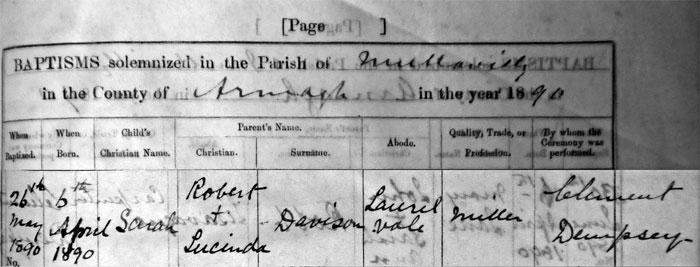 [Page ]
BAPTISMS solemnized in the Parish of Mullavilly
in the County of Armagh in the year 1890
When Baptized. When Born. Child's Christian Name. Parent's Name. Christian. Surname. Abode. Quality, Trade, or Profession. By whom the Ceremony was performed.
26th May 1890 6th April 1890 Sarah Robert + Lucinda Davison Laurel vale Miller Clement Dempsey
No.